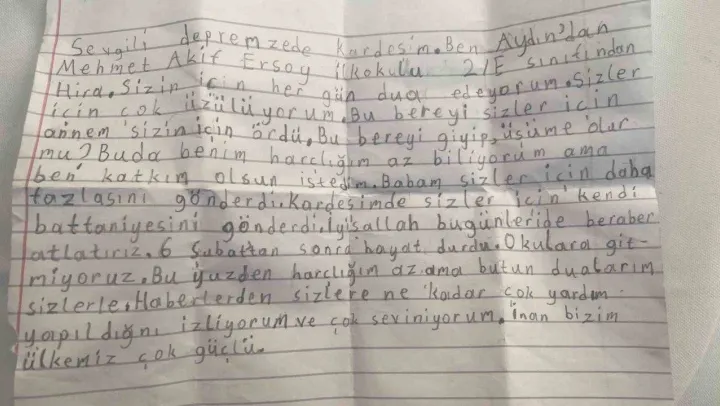 Sevgili depremzede kardeşim. Ben Aydın'dan
Mehmet Akif Ersoy İlkokulu 2/E sınıfından
Hira. Sizin için her gün dua edeyorum. Sizler
için çok üzülüyorum. Bu bereyi sizler için
annem sizin için ördü. Bu bereyi giyip, üşüme olur
mu? Buda benim harclığım az biliyorum ama
ben katkım olsun istedim. Babam sizler için daha
fazlasını gönderdi. Kardeşimde sizler için kendi
battaniyesini gönderdi. İyişallah bugünleride beraber
atlatırız. 6 Şubattan sonra hayat durdu. Okulara git-
miyoruz. Bu yüzden harclığım az ama butun dualarım
sizlerle. Haberlerden sizlere ne kadar çok yardım
yapıldığnı izliyorum ve çok seviniyorum. İnan bizim
ülkemiz çok güçlü.